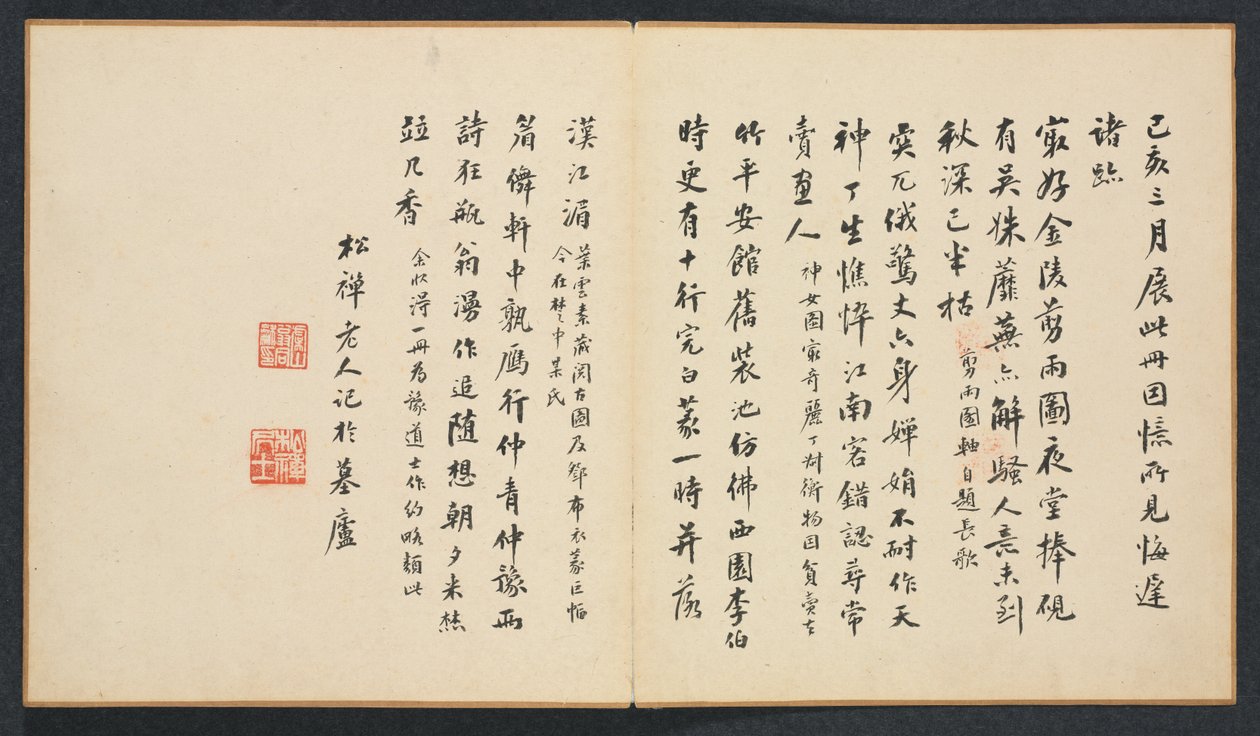 己亥三月展此冊因憶所見悔遲
諸跡
最好金陵剪雨圖夜堂捧硯
有吳姝蘼蕪亦解騷人意未到
秋深已半枯 剪雨圖軸自題長歌
突兀俄驚丈六身嬋娟不耐作天
神丁生憔悴江南客錯認尋常
賣畫人 神女圖最奇麗丁叔衡物因貧賣去
竹平安館舊裝池仿佛西園李伯
時更有十行完白篆一時并落
漢江湄 葉雲素藏閱古圖及鄧布衣篆巨幅
今在楚中某氏
眉儛軒中孰雁行仲青仲豫兩
詩狂瓶翁漫作追隨想朝夕米㷊
並几香 余收得一冊為豫道士作約略類此
松禪老人記於墓廬
虞山翁同龢印
松禪居士